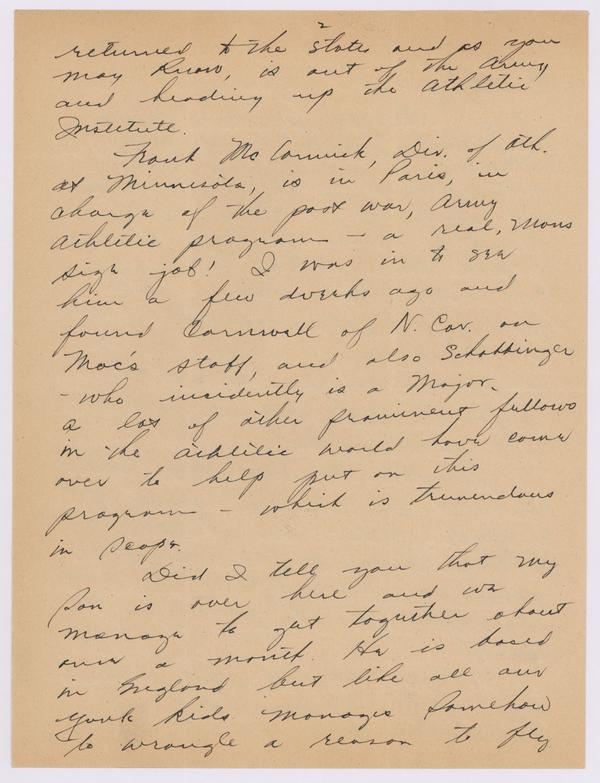 2
returned to the States and as you
may know, is out of the Army
and heading up the Athletic
Institute.
Frank McCormick, Dir. of Ath.
at Minnesota, is in Paris, in
charge of the post war, Army
Athletic program - a real, mans
size job! I was in to see
him a few weeks ago and
found Cornwell of N. Car. on
Mac's staff, and also Schabinger
- who insidently is a Major.
a lot of other prominent fellows
in the athletic world have come
over to help put on this
program - which is tremendous
in scope.
Did I tell you that my
son is over here and we
manage to get together about
once a month. He is based
in England but like all our
Yank kids manages somehow
to wrangle a reason to fly